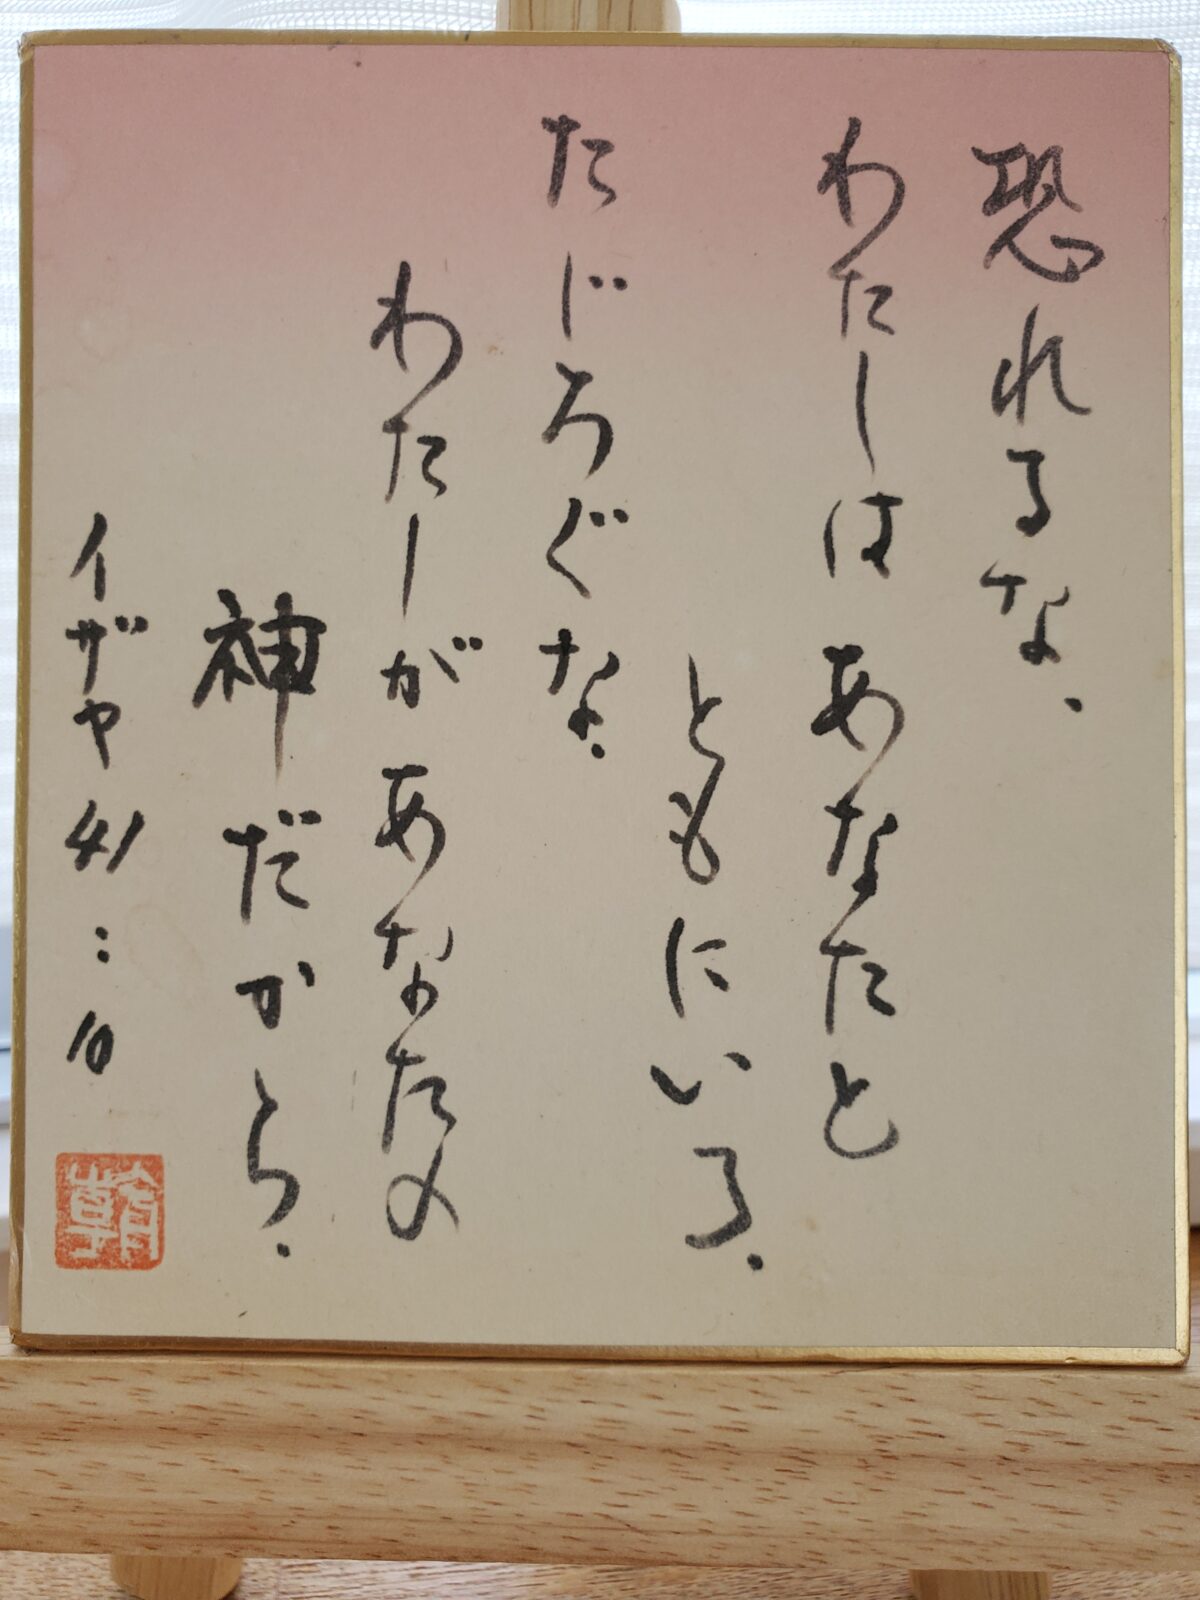 恐れるな.
わたしは あなたと
ともにいる.
たじろぐな.
わたしが あなたの
神だから.
イザヤ 41:10